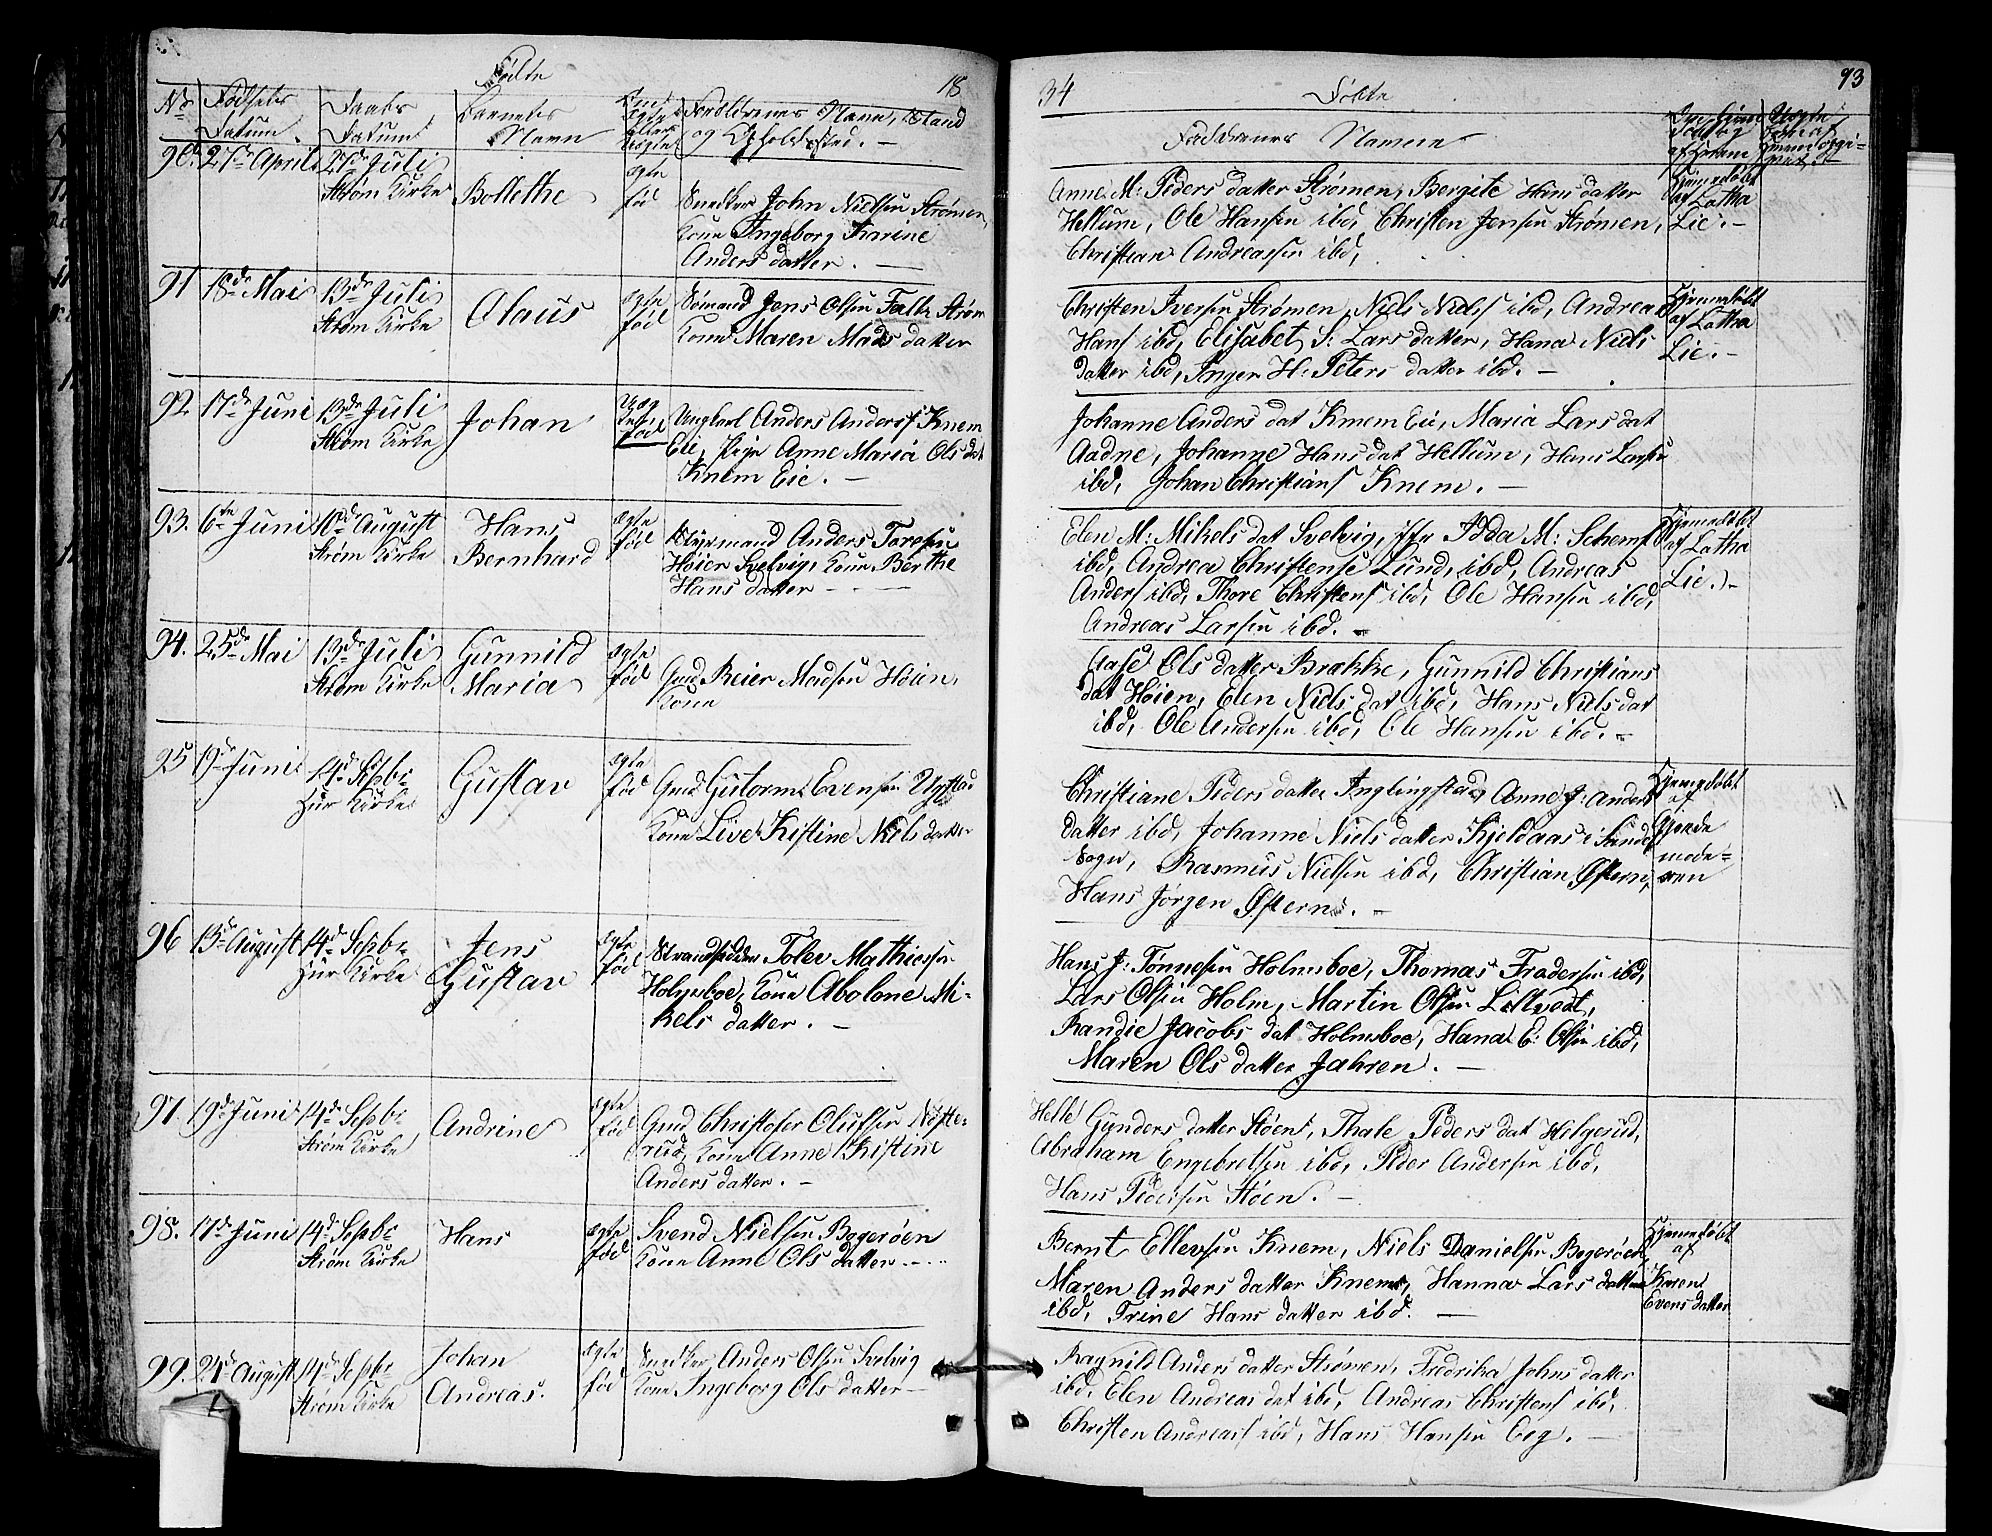 Fødte
18
No
Fødsels
Datum
Daabs
Datum
Barnets
Navn
Forældrenes Navn, Stand
og Opholdssted. —
90. 27de April 27de Juli
Strøm Kirke
Bollethe
ægte
fød
Snedker John Nielsen Strømen,
Kone Ingeborg Karine
Anders datter. —
91 18de Mai 13de Juli
Strøm Kirke
Olaus
ægte
fød
Sømand Jens Olsen Falk Strøm
Kone Maren Mads datter
92. 17de Juni 13de Juli
Strøm Kirke
Johan
Uæg
fød
Ungkarl Anders Anders Knem
Eie, Pige Anne Maria Ols dat
Knem Eie. —
93. 6te Juni 10de August
Strøm Kirke
Hans
Bernhard
ægte
fød
Styrmand Anders Toresen
Høien Svelvig, Kone Berthe
Hans datter —
94. 25de Mai 13de Juli
Strøm Kirke
Gunnild
Maria
ægte
fød
Gmd Reier Madsen Høien,
Kone
95 19de Juni 14de Sepbr
Hur Kirke
Gustav
ægte
fød
Gmd Gutorm Evensen
Kone Live Kistine Niels datter
96 13de August 14de Sepbr
Hur Kirke
Jens
Gustav
ægte
fød
Strandsidder Tolev Mathiesen
Holmsboe, Kone Abolone Mi-
kels datter. —
97. 19de Juni 14de Sepbr
Strøm Kirke
Andrine
ægte
fød
Gmd Christofer Olufsen Nøste-
rud, Kone Anne Kistine
Anders datter. —
98. 17de Juni 14de Sepbr
Strøm Kirke
Hans
ægte
fød
Svend Nielsen Bogerøen
Kone Anne Ols datter
99. 24de August 14de Sepbr
Strøm Kirke
Johan
Andreas.
ægte
fød
Snedker Anders Olsen Svelvig
Kone Ingeborg Ols datter —
34
Fødte
93
Faddernes Navne
Anne M: Peders datter Strømen, Bergite Hans datter
Hellum, Ole Hansen ibd, Christen Jensen Strømen,
Christian Andreassen ibd,
Hjemedøbt
af Lotha
Lie. —
Christen Iversen Strømen, Niels Niels ibd, Andreas
Hans ibd, Elisabet S: Lars datter, Hana Niels
datter ibd, Inger H: Peters datter ibd. —
Hjemedøbt
af Lotha
Lie. —
Johanne Anders dat Knem Eie, Maria Lars dat
Aadne, Johanne Hans dat Hellum, Hans Larsen
ibd, Johan Christians Knem. —
Elen M: Mikels dat Svelvig, Jfr Idda M: Schems
ibd, Andrea Christense Lund, ibd, Andreas
Anders ibd, Thore Christens ibd, Ole Hansen ibd,
Andreas Larsen ibd. —
Hjemedøbt
af Lotha
Lie. —
Aase Ols datter Brække, Gunnild Christians
dat Høien, Elen Niels dat ibd, Hans Niels dat
ibd, Ole Andersen ibd, Ole Hansen ibd. —
Christiane Peders datter Inglingstad, Anne J: Anders
datter ibd, Johanne Niels datter Kjeldaas i Sande
Sogn, Rasmus Nielsen ibd, Christian Østern,
Hans Jørgen Østern. —
Hjemedøbt
af
Gjorde
mode=
ren
Hans J: Tønnesen Holmsboe, Thomas Fradersen ibd,
Lars Olsen Holm, Martin Olsen Listvedt,
Randie Jacobs dat Holmsboe, Hana E: Olsen ibd,
Maren Ols datter Jahren. —
Helle Gunders datter Støen, Thale Peders dat Helgerud,
Abraham Engebretsen ibd, Peder Andersen ibd,
Hans Pedersen Støen. —
Bernt Ellevsen Knem, Niels Danielsen Bogerøen,
Maren Anders datter Knem, Hanna Lars datter
ibd, Trine Hans datter ibd. —
Hjemedøbt
af
Karen
Evens datter
Ragnild Anders datter Strømen, Fredrika Johns datter
ibd, Elen Andreas dat ibd, Andreas Christens ibd,
Christen Andreas ibd, Hans Hansen Eeg. —